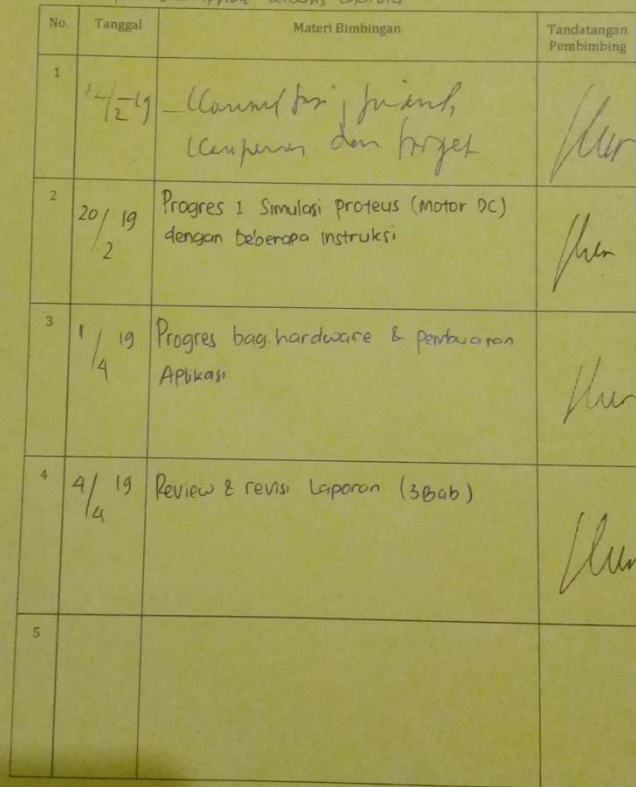 No. Tanggal Materi Bimbingan Tandatangan
Pembimbing
1
dan target
2 20/2 19 Progres 1 Simulasi Proteus (Motor DC)
dengan beberapa instruksi
3 1/4 19 Progres bag. hardware & pembuatan
Aplikasi
4 4/4 19 Review & revisi Laporan (3 Bab)
5